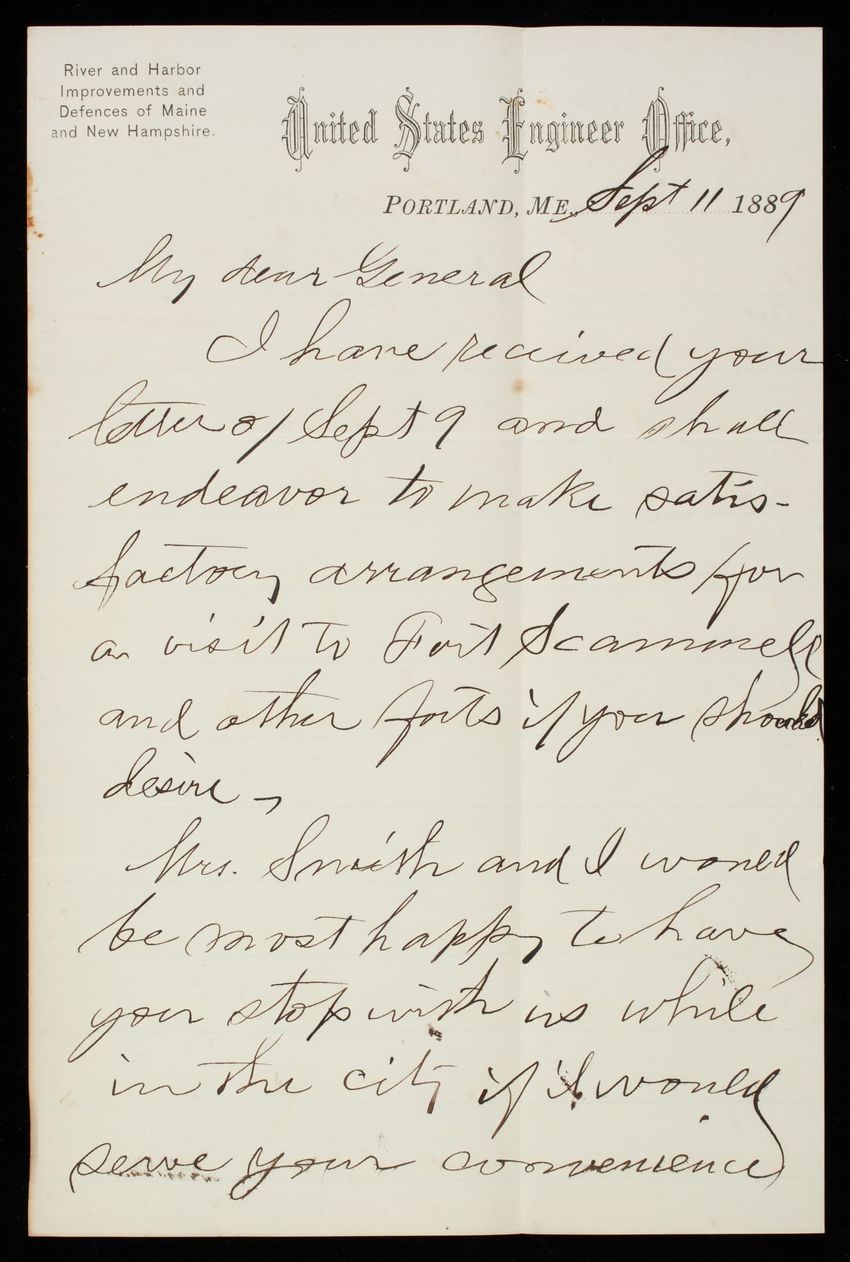 River and Harbor
Improvements and
Defences of Maine
and New Hampshire.
United States Engineer Office,
PORTLAND, ME., Sept 11 1889
My dear General
I have received your
letter of Sept 9 and shall
endeavor to make satis-
factory arrangements for
a visit to Fort Scammell
and other forts if you should
desire -
Mrs. Smith and I would
be most happy to have
you stop with us while
in the city if it would
serve your convenience